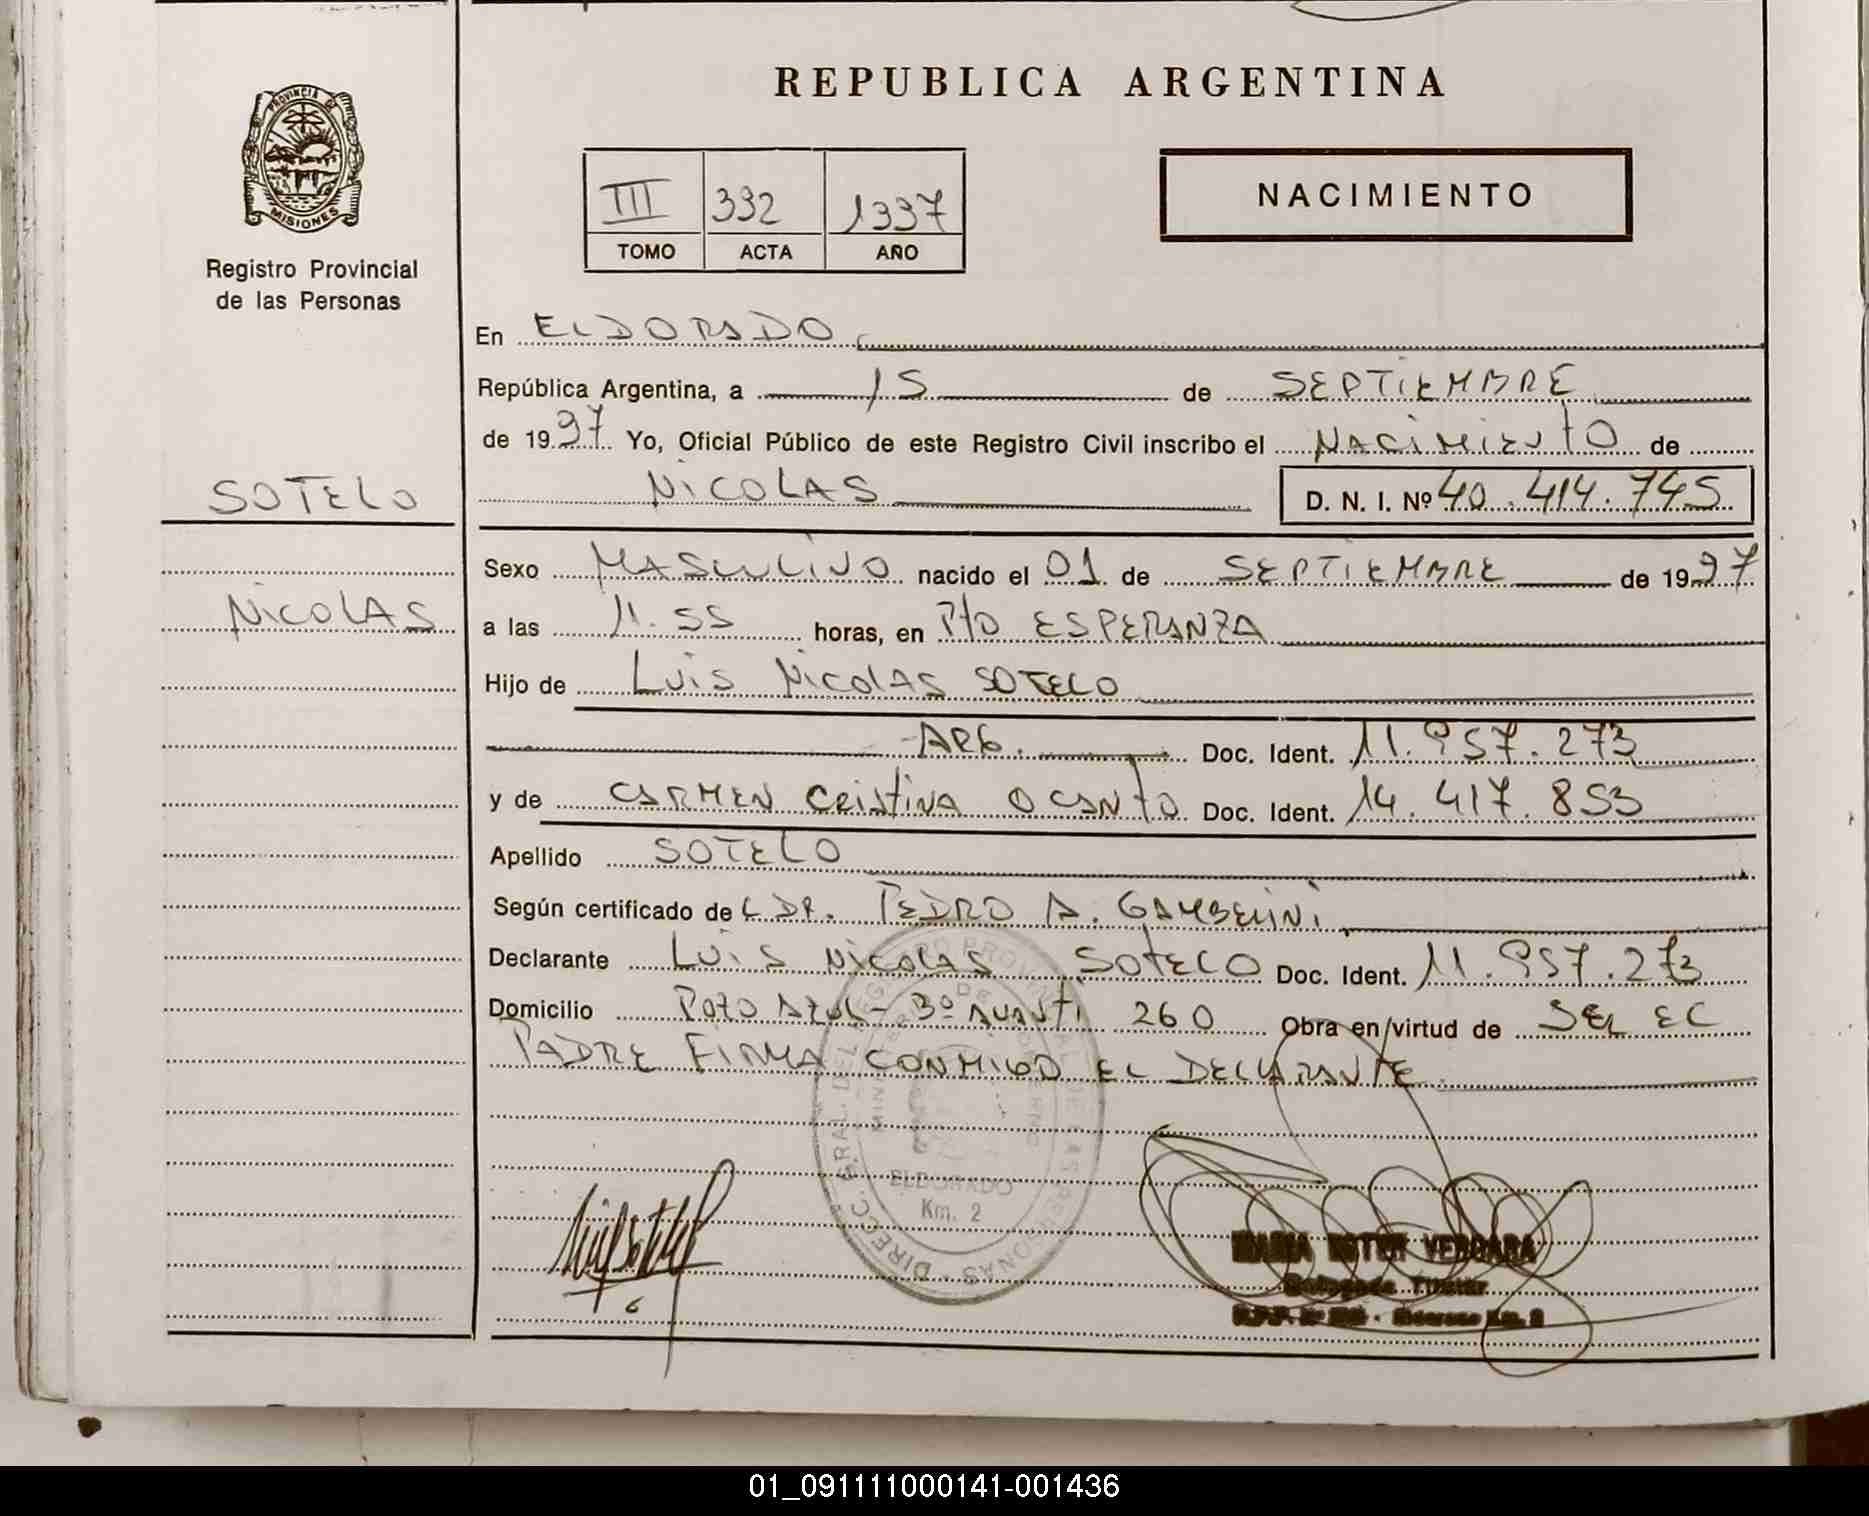 REPUBLICA ARGENTINA
PROVINCIA DE
MISIONES
Registro Provincial
de las Personas
III 332 1997
TOMO ACTA AÑO
NACIMIENTO
En ELDORADO
República Argentina, a 15 de SEPTIEMBRE
de 1997 Yo, Oficial Público de este Registro Civil inscribo el NACIMIENTO de
NICOLAS D. N. I. Nº 40.414.745
SOTELO
NICOLAS
Sexo MASCULINO nacido el 01 de SEPTIEMBRE de 1997
a las 11.55 horas, en Pto ESPERANZA
Hijo de LUIS NICOLAS SOTELO
ARG. Doc. Ident. 11.957.273
y de CARMEN CRISTINA OCANTO Doc. Ident. 14.417.853
Apellido SOTELO
Según certificado de L DR. PEDRO A. GAMBELINI
Declarante LUIS NICOLAS SOTELO Doc. Ident. 11.957.273
Domicilio POZO AZUL - 3º AVANTI 260 Obra en virtud de SEL EC
PADRE FIRMA CONMIGO EL DECLARANTE
DIREC. GRAL. DEL REGISTRO PROVINCIAL DE LAS PERSONAS
ELDORADO
Km. 2
MARIA ESTER VERGARA
Delegada Titular
01_091111000141-001436